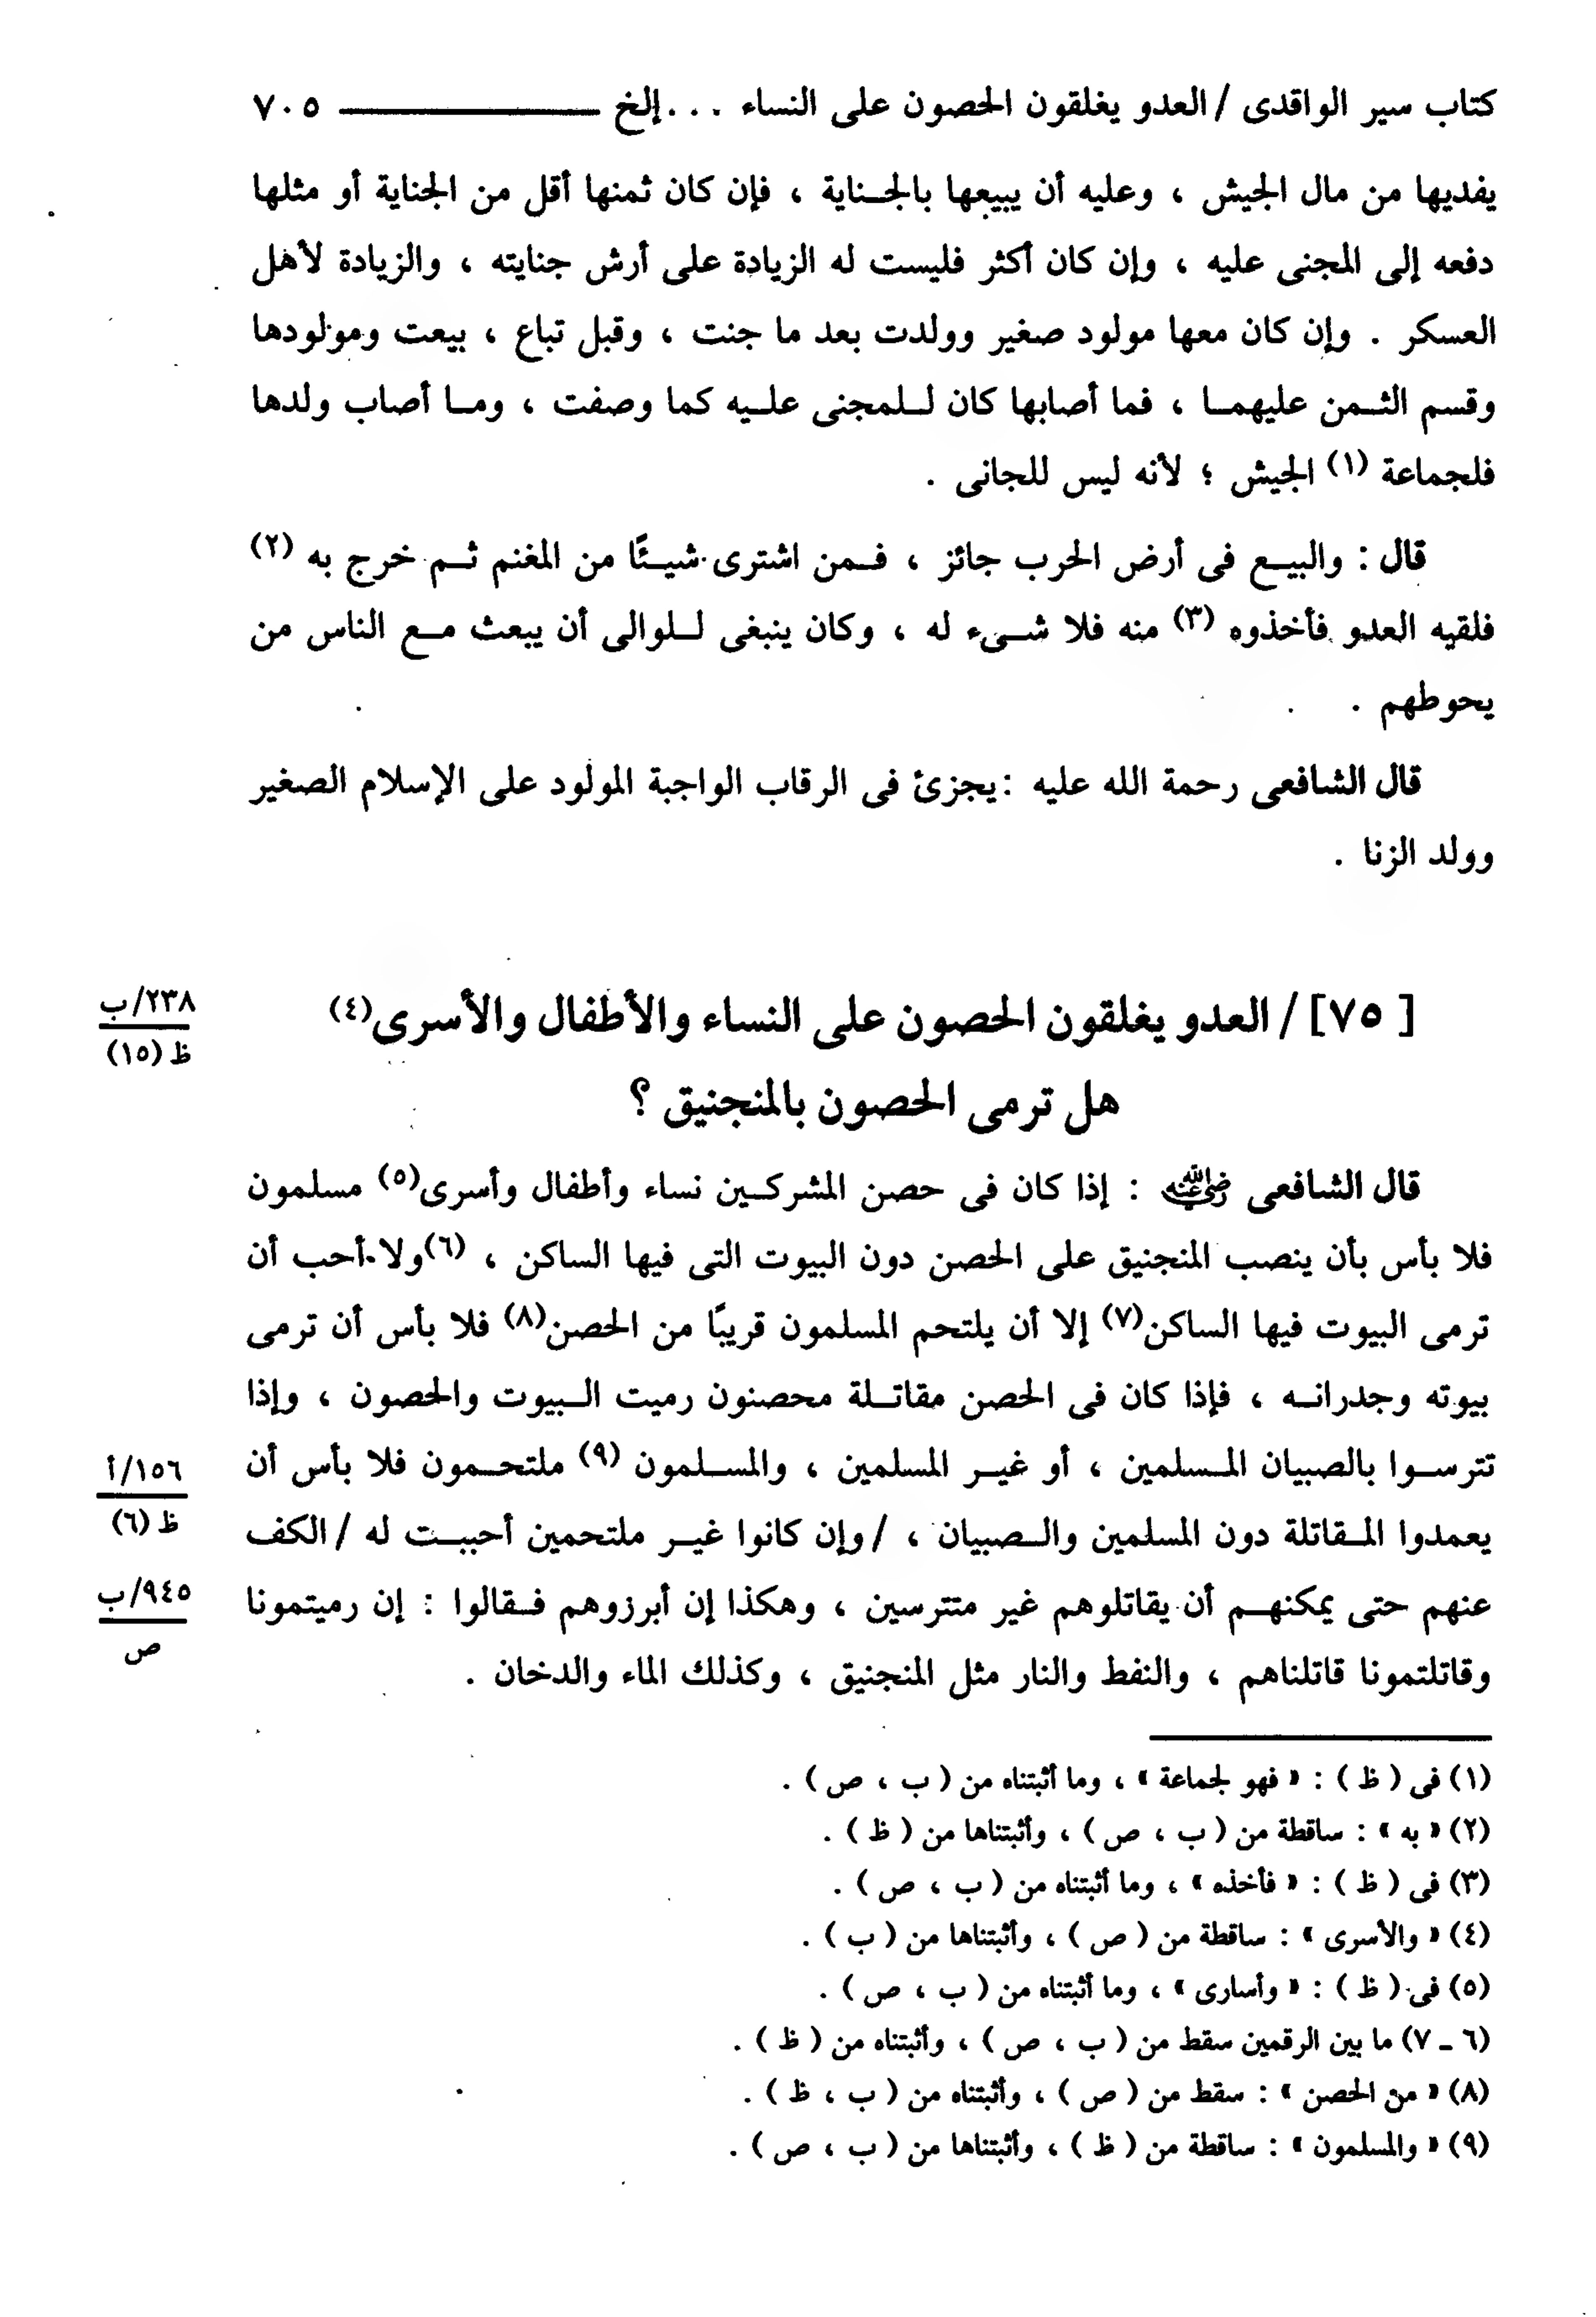 كتاب سير الواقدى / العدو يغلقون الحصون على النساء . . . إلخ ـــــــــــ ٧٠٥
يفديها من مال الجيش ، وعليه أن يبيعها بالجـناية ، فإن كان ثمنها أقل من الجناية أو مثلها
دفعه إلى المجنى عليه ، وإن كان أكثر فليست له الزيادة على أرش جنايته ، والزيادة لأهل
العسكر . وإن كان معها مولود صغير وولدت بعد ما جنت ، وقبل تباع ، بيعت ومولودها
وقسم الثـمن عليهمـا ، فما أصابها كان لـلمجنى علـيه كما وصفت ، ومـا أصاب ولدها
فلجماعة (١) الجيش ؛ لأنه ليس للجانى .
قال : والبيـع فى أرض الحرب جائز ، فـمن اشترى شيـئًا من المغنم ثـم خرج به (٢)
فلقيه العدو فأخذوه (٣) منه فلا شـىء له ، وكان ينبغى لـلوالى أن يبعث مـع الناس من
يحوطهم .
قال الشافعى رحمة الله عليه : يجزئ فى الرقاب الواجبة المولود على الإسلام الصغير
وولد الزنا .
[ ٧٥ ] / العدو يغلقون الحصون على النساء والأطفال والأسرى(٤)
٢٣٨/ب
ظ (١٥)
هل ترمى الحصون بالمنجنيق ؟
قال الشافعى رضي الله عنه : إذا كان فى حصن المشركـين نساء وأطفال وأسرى(٥) مسلمون
فلا بأس بأن ينصب المنجنيق على الحصن دون البيوت التى فيها الساكن ، (٦)ولا أحب أن
ترمى البيوت فيها الساكن(٧) إلا أن يلتحم المسلمون قريبًا من الحصن(٨) فلا بأس أن ترمى
بيوته وجدرانـه ، فإذا كان فى الحصن مقاتـلة محصنون رميت الـبيوت والحصون ، وإذا
تترسـوا بالصبيان المـسلمين ، أو غيـر المسلمين ، والمسـلمون (٩) ملتحـمون فلا بأس أن
١٥٦/أ
ظ (٦)
يعمدوا المـقاتلة دون المسلمين والـصبيان ، / وإن كانوا غيـر ملتحمين أحببـت له / الكف
٩٤٥/ب
ص
عنهم حتى يمكنهـم أن يقاتلوهم غير متترسين ، وهكذا إن أبرزوهم فـقالوا : إن رميتمونا
وقاتلتمونا قاتلناهم ، والنفط والنار مثل المنجنيق ، وكذلك الماء والدخان .
(١) فى ( ظ ) : « فهو لجماعة » ، وما أثبتناه من ( ب ، ص ) .
(٢) « به » : ساقطة من ( ب ، ص ) ، وأثبتناها من ( ظ ) .
(٣) فى ( ظ ) : « فأخذه » ، وما أثبتناه من ( ب ، ص ) .
(٤) « والأسرى » : ساقطة من ( ص ) ، وأثبتناها من ( ب ) .
(٥) فى ( ظ ) : « وأسارى » ، وما أثبتناه من ( ب ، ص ) .
(٦ ـ ٧) ما بين الرقمين سقط من ( ب ، ص ) ، وأثبتناه من ( ظ ) .
(٨) « من الحصن » : سقط من ( ص ) ، وأثبتناه من ( ب ، ظ ) .
(٩) « والمسلمون » : ساقطة من ( ظ ) ، وأثبتناها من ( ب ، ص ) .